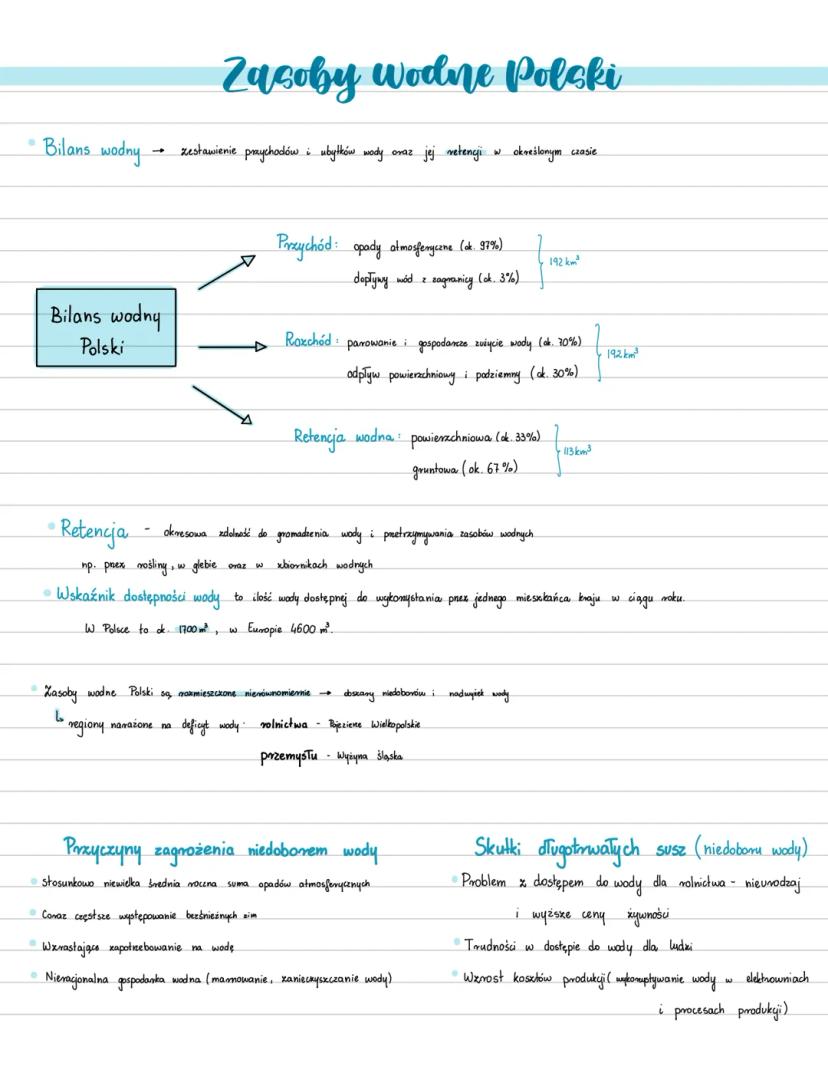 Zasoby wodne Polski
Bilans wodny → zestawienie przychodów i ubytków wody oraz jej retencji w określonym czasie
Przychód: opady atmosferyczne (ok. 97%)
192 km³
dopływy wód z zagranicy (ok. 3%)
Bilans wodny
Polski
Rozchód: parowanie i gospodarcze zużycie wody (ok. 70%)
192 km³
odpływ powierzchniowy i podziemny (ok. 30%)
Retencja wodna: powierzchniowa (ok. 33%)
113 km³
gruntowa (ok. 67%)
Retencja - okresowa zdolność do gromadzenia wody i przetrzymywania zasobów wodnych
np. przez rośliny, w glebie oraz w zbiornikach wodnych
Wskaźnik dostępności wody to ilość wody dostępnej do wykorzystania przez jednego mieszkańca kraju w ciągu roku.
W Polsce to ok. 1700 m³, w Europie 4600 m³.
Zasoby wodne Polski są rozmieszczone nierównomiernie → obszary niedoborów i nadwyżek wody
regiony narażone na deficyt wody: rolnictwa - Pojezierze Wielkopolskie
przemysłu - Wyżyna Śląska
Przyczyny zagrożenia niedoborem wody
Stosunkowo niewielka średnia roczna suma opadów atmosferycznych
Coraz częstsze występowanie bezśnieżnych zim
Wzrastające zapotrzebowanie na wodę
Nieracjonalna gospodarka wodna (marnowanie, zanieczyszczanie wody)
Skutki długotrwałych susz (niedoboru wody)
Problem z dostępem do wody dla rolnictwa - nieurodzaj
i wyższe ceny żywności
Trudności w dostępie do wody dla ludzi
Wzrost kosztów produkcji (wykorzystywanie wody w elektrowniach
i procesach produkcji)